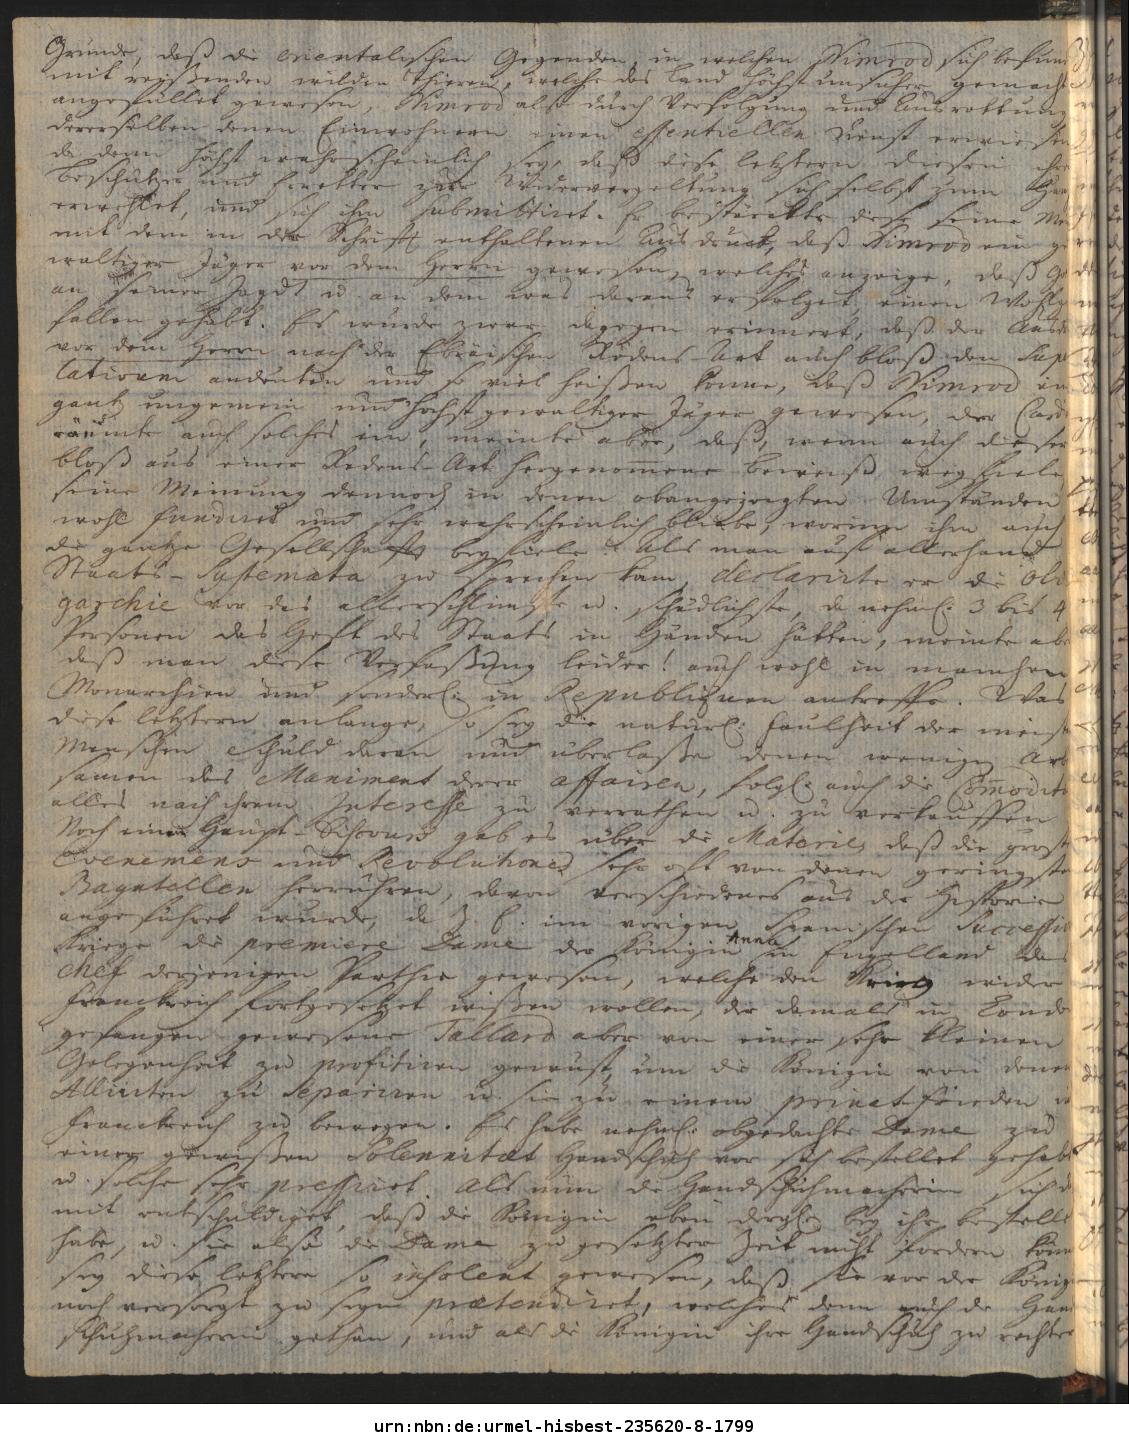 Grunde, daß die orientalischen Gegenden, in welchen Nimrod sich befund
mit reißenden wilden Thieren, welche das Land höchst unsicher gemacht
angefüllet gewesen, Nimrod also durch Verfolgung und Ausrottung
dererselben denen Einwohnern einen essentiellen Dienst erwiesen
da denn höchst wahrscheinlich sey, daß diese letztern diesen ihren
Beschützer und Erretter zur Wiedervergeltung sich selbst zum
erwehlet, und sich ihm submittiret. Er bestärckte diese seine
mit dem in der Schrifft enthaltenen Ausdruck, daß Nimrod ein ge
waltiger Jäger vor dem Herrn gewesen, welches anzeige, daß
an seiner Jagdt u. an dem was daraus erfolget, einen Wohlge
fallen gehabt. Es wurde zwar dagegen erinnert, daß der
vor dem Herrn nach der Ebräischen Redens-Art auch bloß den Super
lativum andeuten und so viel heißen könne, daß Nimrod ein
gantz ungemein und höchst gewaltiger Jäger gewesen, der
räumte auch solches ein, meinte aber, daß, wenn auch dieser
bloß aus einer Redens-Art hergenommene Beweiß wegfiele
seine Meinung dennoch in denen obangezeigten Umständen
wohl fundiret und sehr wahrscheinlich bliebe, worinn ihm auch
die gantze Gesellschafft beyfiele. Als man auf allerhand
Staats-Systemata zu sprechen kam, declarirte er die Oli
garchie vor das allerschlimste u. schädlichste, da nehml. 3 bis 4
Personen das Heft des Staats in Händen hätten, meinte aber
daß man diese Verfaßung leider! auch wohl in manchen
Monarchien und sonderl. in Republiquen antreffe. Was
diese letztern anlange, so sey die naturl. Faulheit der meisten
Menschen Schuld daran und überlaße denen wenigen
samen das Maniment derer affairen, folgl. auch die Commodite
alles nach ihrem Interesse zu verrathen u. zu verkauffen
Noch einen Haupt-Discours gab es über die Materie, daß die grosten
Evenemens und Revolutiones sehr oft von denen geringsten
Bagatellen herrühren, davon verschiedenes aus der Historie
angeführet wurde, da z. E. im vorigen Spanischen Successions
Kriege die premiere Dame der Königin Anna in Engelland das
Chef derjenigen Parthie gewesen, welche den Krieg wider
Franckreich fortgesetzet wißen wollen, der damals in Londen
gefangen gewesene Tallard aber von einer sehr kleinen
Gelegenheit zu profitiren gewust, um die Königin von denen
Alliirten zu separiren u. sie zu einem privat Frieden
Franckreich zu bewegen. Es habe nehml. obgedachte Dame zu
einer gewißen Solennitæt Handschuh vor sich bestellet gehabt
u. solche sehr pressiret. Als nun die Handschuhmacherin sich da
mit entschuldiget, daß die Königin eben dergl. bey ihr bestellt
habe, u. sie also die Dame zu gesetzter Zeit nicht fördern könne
sey diese letztere so insolent gewesen, daß sie vor der Königin
noch versorgt zu seyn prætendiret, welches denn auch die Hand
schuhmacherin gethan, und als die Königin ihre Handschuh zu rechter
urn:nbn:de:urmel-hisbest-235620-8-1799